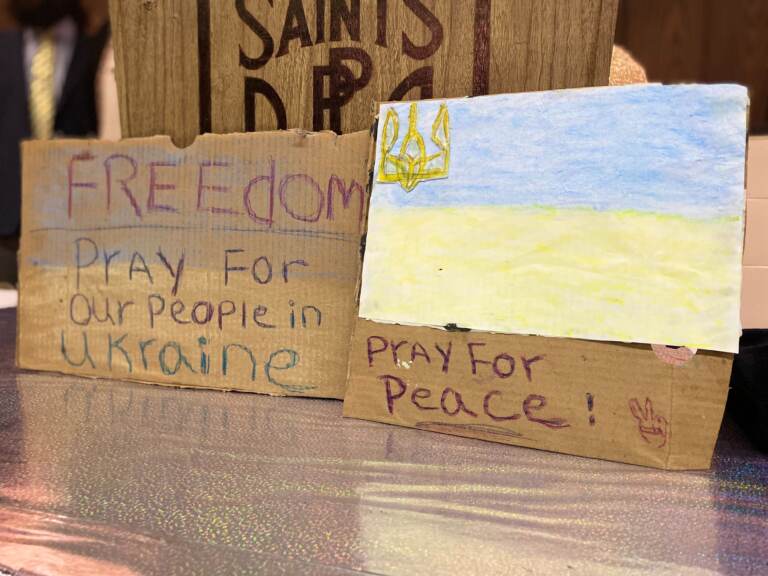 SAINTS
FREEdom
Pray For
our People in
Ukraine
Pray For
Peace!